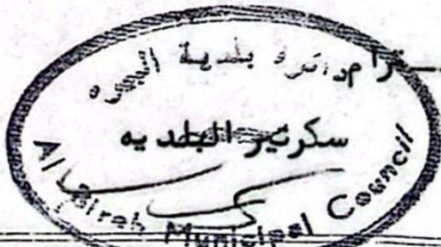 دائرة بلدية البيره
سكرتير البلديه
Al Municipal Council